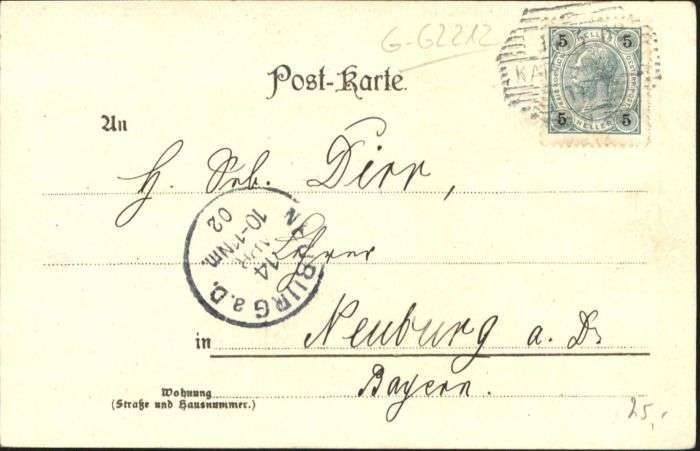 G-G2212
5 HELLER 5
KA
5 HELLER 5
Post-Karte.
An
H. Seb. Dirr,
Lehrer
NEUBURG a. D.
14
APR
10-11 Nm.
02
in Neuburg a. D.
Bayern.
Wohnung
(Straße und Hausnummer.)
25,-